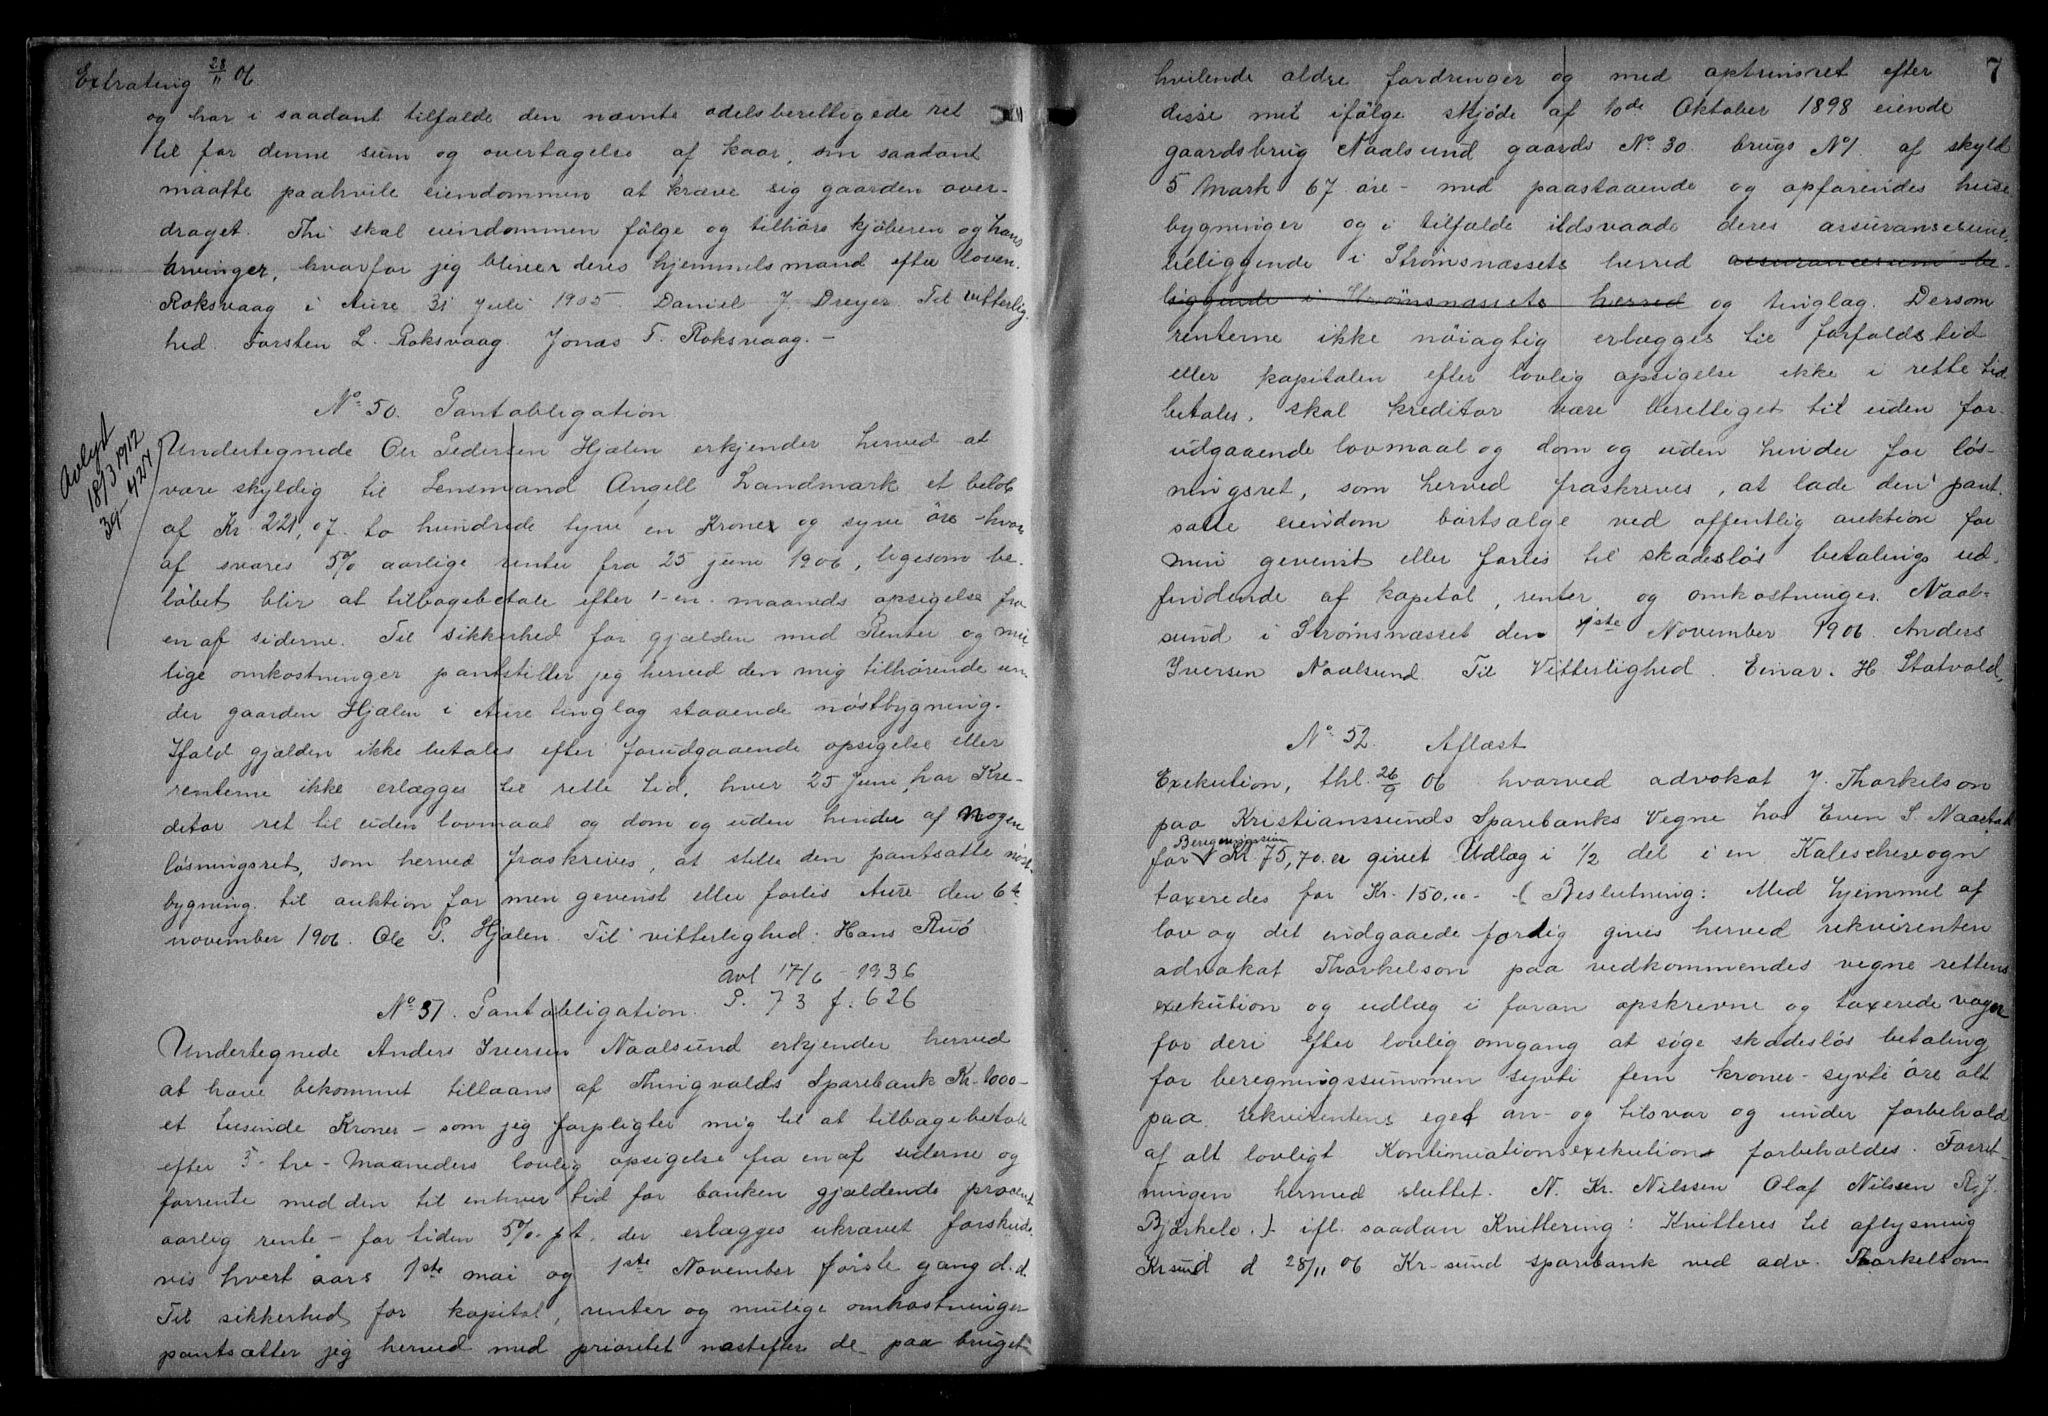 Extrating 28/11 06.
og har i saadant tilfælde den nævnte odelsberettigede ret
til for denne sum og overtagelse af kaar, om saadant
maatte paahvile eiendommen at kræve sig gaarden over-
draget. Thi skal eiendommen følge og tilhøre kjøberen og hans
arvinger, hvorfor jeg bliver deres hjemmelsmand efter loven.
Roksvaag i Aure 31 Juli 1905. Daniel J. Dreyer. Til vitterlig-
hed. Torsten L. Roksvaag. Jonas T. Roksvaag. -
No. 50. Pantobligation
Avlyst
18/3 1912
39-427
Undertegnede Ole Pedersen Hjælen erkjender herved at
være skyldig til Lensmand Angell Landmark et beløb
af Kr. 221,07. to hundrede tyve en Kroner og syve öre - hvor
af svares 5% aarlige renter fra 25 juni 1906, ligesom be-
løbet blir at tilbagebetale efter 1-en maaneds opsigelse fra
en af siderne. Til sikkerhed for gjælden med Renter og mu-
lige omkostninger pantstiller jeg herved den mig tilhørende un-
der gaarden Hjælen i Aure tinglag staaende nøstbygning.
Ifald gjælden ikke betales efter forudgaaende opsigelse eller
renterne ikke erlægges til rette tid, hver 25 Juni, har Kre-
ditor ret til uden lovmaal og dom og uden hinder af nogen
løsningsret, som herved fraskrives, at stille den pantsatte nøst-
bygning til auktion for men gevinst eller forlis Aure den 6te
november 1906. Ole P. Hjælen. Til vitterlighed: Hans Ruø.
Avl 17/6 - 1936
P. 73 f. 626
No. 51. Pantobligation.
Undertegnede Anders Iversen Naalsund erkjender herved
at have bekommet tillaans af Thingvolds Sparebank Kr. 1000 -
et tusende Kroner - som jeg forpligter mig til at tilbagebetale
efter 3 - tre - Maaneders lovlig opsigelse fra en af siderne og
forrente med den til enhver tid for banken gjældende procent
aarlig rente - for tiden 5% p.t. der erlægges ukrævet forskuds-
vis hvert aars 1ste mai og 1ste November første gang d.d.
Til sikkerhed for kapital, renter og mulige omkostninger
pantsætter jeg herved med prioritet næstefter de paa bruget
7
hvilende ældre fordringer og med optrinsret efter
disse mit ifølge skjøde af 10de Oktober 1898 eiende
gaardsbrug Naalsund gaards No. 30 brugs No 1 af skyld
5 Mark 67 øre - med paastaaende og opførendes huse
bygninger og i tilfælde ildsvaade deres assuransesum,
beliggende i Strømsnæssets herred assurancesum be-
liggende i Strømsnæssets herred og tinglag. Dersom
renterne ikke nøiagtig erlægges til forfaldstid
eller kapitalen efter lovlig opsigelse ikke i rette tid
betales, skal kreditor være berettiget til uden for-
udgaaende lovmaal og dom og uden hinder for løs-
ningsret, som herved fraskrives, at lade den pant-
satte eiendom bortsælge ved offentlig auktion for
min gevinst eller forlis til skadesløs betalings ud-
findende af kapital, renter og omkostninger. Naal-
sund i Strømsnæsset den 1ste November 1906. Anders
Iversen Naalsund. Til Vitterlighed. Einar H. Statvold,
No. 52. Aflæst
Exekution, thl. 26/9 06 hvorved advokat J. Thorkelson
paa Kristianssunds Sparebanks Vegne hos Even S.
for Kr. 75,70. er givet Udlæg i 1/2 del i en Kaleschevogn
taxeredes for Kr. 150.00 - ( Beslutning: Med hjemmel af
lov og det indgaaede forlig gives herved rekvirenten
advokat Thorkelson paa vedkommendes vegne rettens
exekution og udlæg i foran opskrevne og taxerede vogn
for deri efter lovlig omgang at søge skadesløs betaling
for beregningssummen sytti fem kroner - sytti öre alt
paa rekvirentens eget an- og tilsvar og under forbehold
af alt lovligt Kontinuationsexekution forbeholdes. Forret-
ningen hermed sluttet. N. Kr. Nilssen Olaf Nilssen R. J.
Bjørkelo.) ifl. saadan Kvittering: Kvitteres til aflysning
Krsund d 28/11 06 Kr-sund sparebank ved adv. Thorkelson